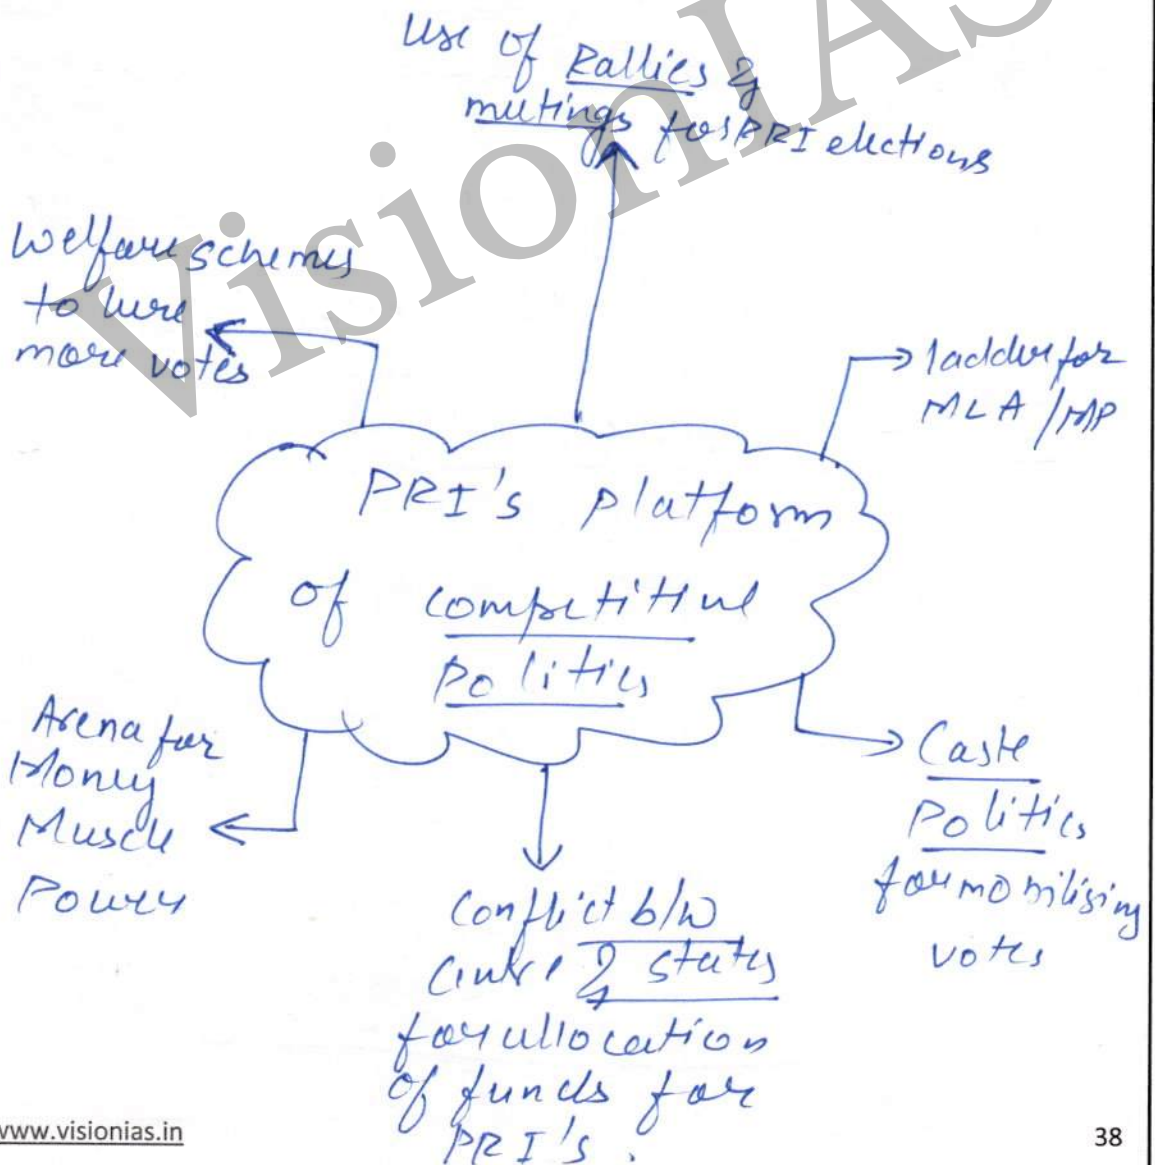 Use of Rallies &
meetings for PRI elections
Welfare schemes
to lure
more votes
ladder for
MLA / MP
PRI's platform
of competitive
Politics
Arena for
Money
Muscle
Power
Caste
Politics
for mobilising
votes
Conflict b/w
Centre & states
for allocation
of funds for
PRI's.
VisionIAS
www.visionias.in
38